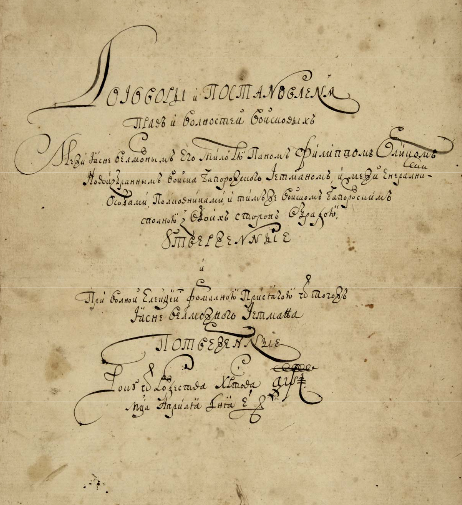 Договоры и Постановленя
Правъ и волностей войсковыхъ
Межи Ясне велможнымъ Его Милостю Паномъ Филиппомъ Орликомъ
Новоизбраннымъ войска Запорозкого Гетманомъ, и межи Енерални-
Особами, Полковниками и тимъ же войскомъ Запорозкимъ
сполною з обоихъ сторонъ обрадою
Утверженные
и
При волной Елекціи формалною Присягою от того жъ
Ясне велможного Гетмана
Потверженные
Року от Рождества Христова аψі
Мца Априля Дня е